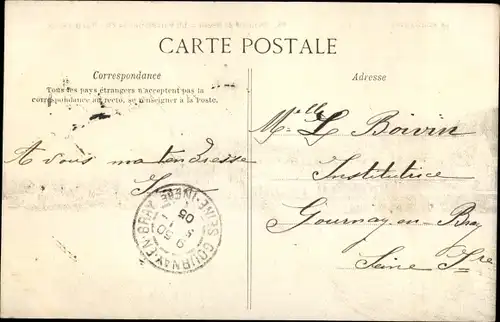 CARTE POSTALE
Correspondance
Tous les pays étrangers n'acceptent pas la
correspondance au recto, se renseigner à la Poste.
A vous ma tendresse
Adresse
Mlle L Boivin
Institutrice
Gournay-en-Bray
Seine Inre
GOURNAY-EN-BRAY SEINE-INFRE
05